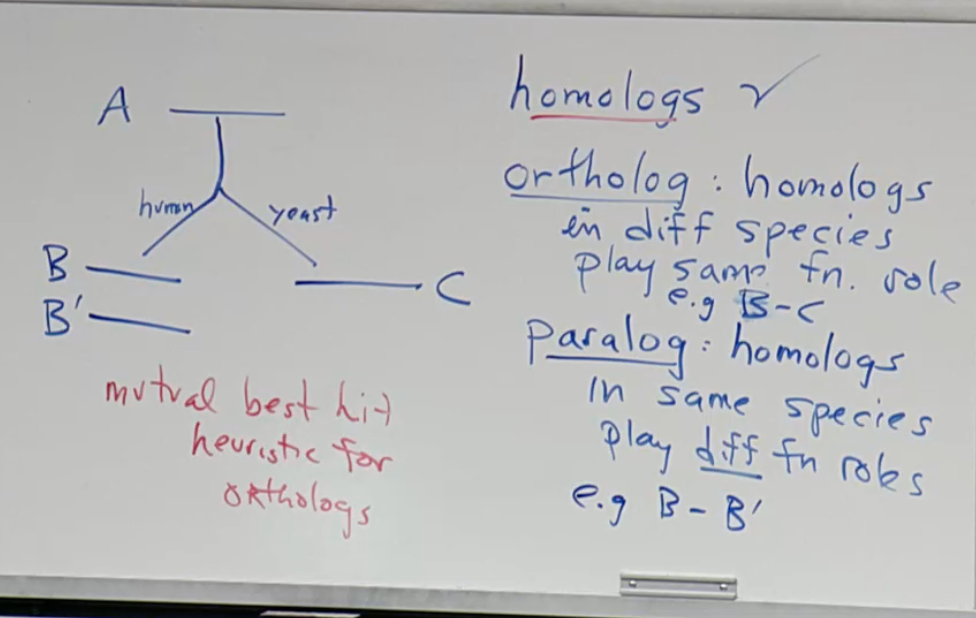 A
human yeast
B
B'
C
mutual best hit
heuristic for
orthologs
homologs ✓
ortholog: homologs
in diff species
play same fn. role
e.g B-C
paralog: homologs
in same species
play diff fn roles
e.g B-B'